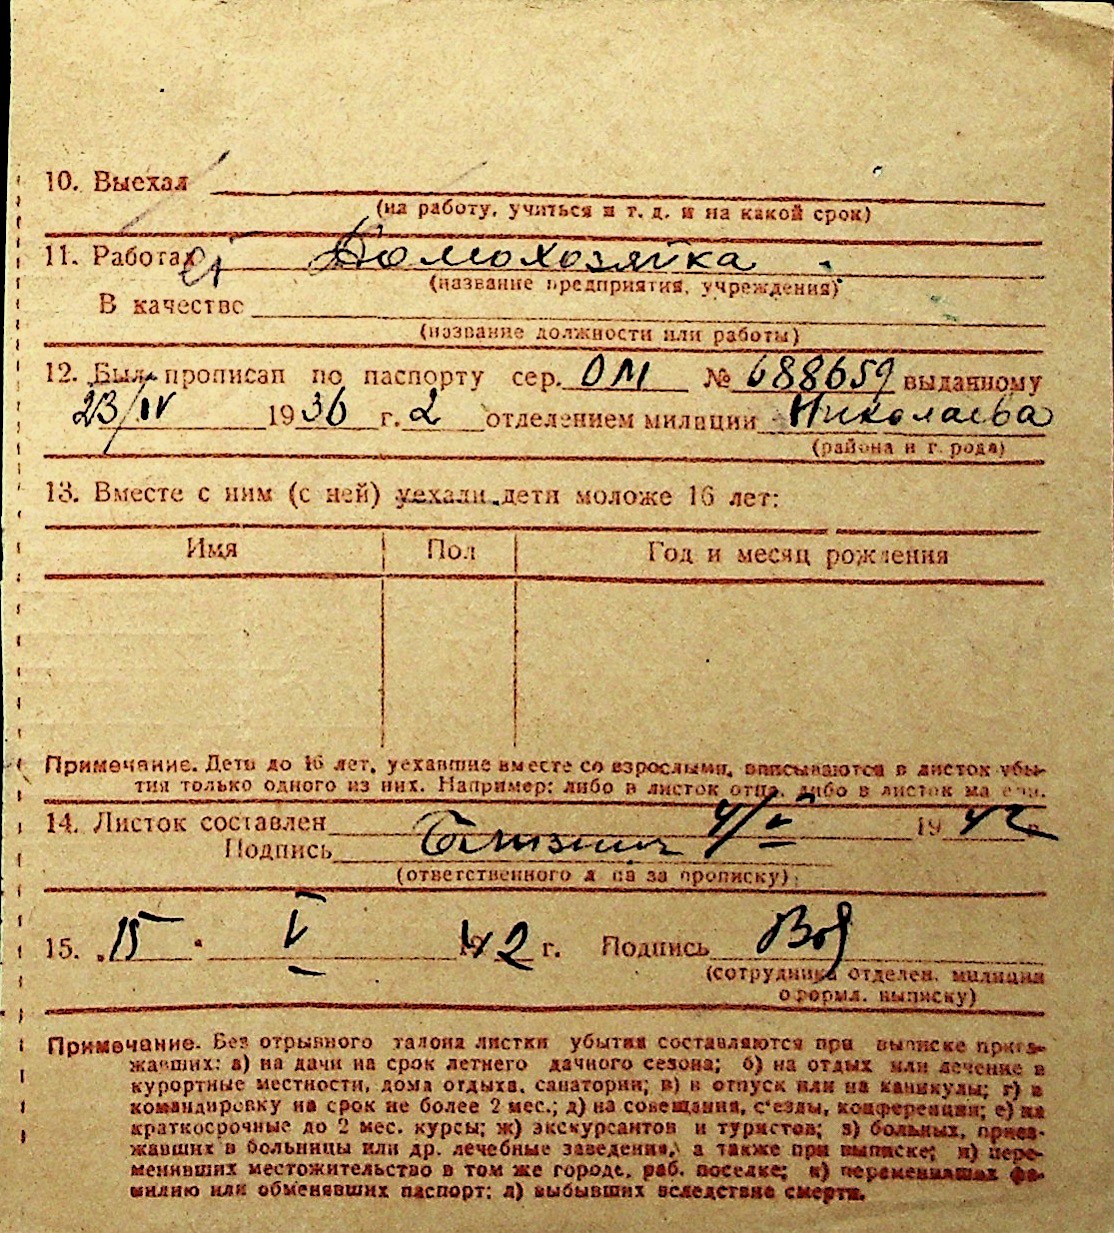 10. Выехал
(на работу, учиться и т. д. и на какой срок)
11. Работает Домохозяйка
(название предприятия, учреждения)
В качестве
(название должности или работы)
12. Был прописан по паспорту сер. ОМ № 688659 выданному
23/IV 1936 г. 2 отделением милиции Николаева
(района и города)
13. Вместе с ним (с ней) уехали дети моложе 16 лет:
Имя Пол Год и месяц рождения
Примечание. Дети до 16 лет, уехавшие вместе со взрослыми, вписываются в листок убы-
тия только одного из них. Например: либо в листок отца, либо в листок матери.
14. Листок составлен 4/V 1942
Подпись
(ответственного лица за прописку)
15. 15 V 1942 г. Подпись
(сотрудника отделен. милиции
оформл. выписку)
Примечание. Без отрывного талона листки убытия составляются при выписке приез-
жавших: а) на дачи на срок летнего дачного сезона; б) на отдых или лечение в
курортные местности, дома отдыха, санатории; в) в отпуск или на каникулы; г) в
командировку на срок не более 2 мес.; д) на совещания, с'езды, конференции; е) на
краткосрочные до 2 мес. курсы; ж) экскурсантов и туристов; з) больных, приез-
жавших в больницы или др. лечебные заведения, а также при выписке; и) пере-
менивших местожительство в том же городе, раб. поселке; к) переменивших фа-
милию или обменявших паспорт; л) выбывших вследствие смерти.